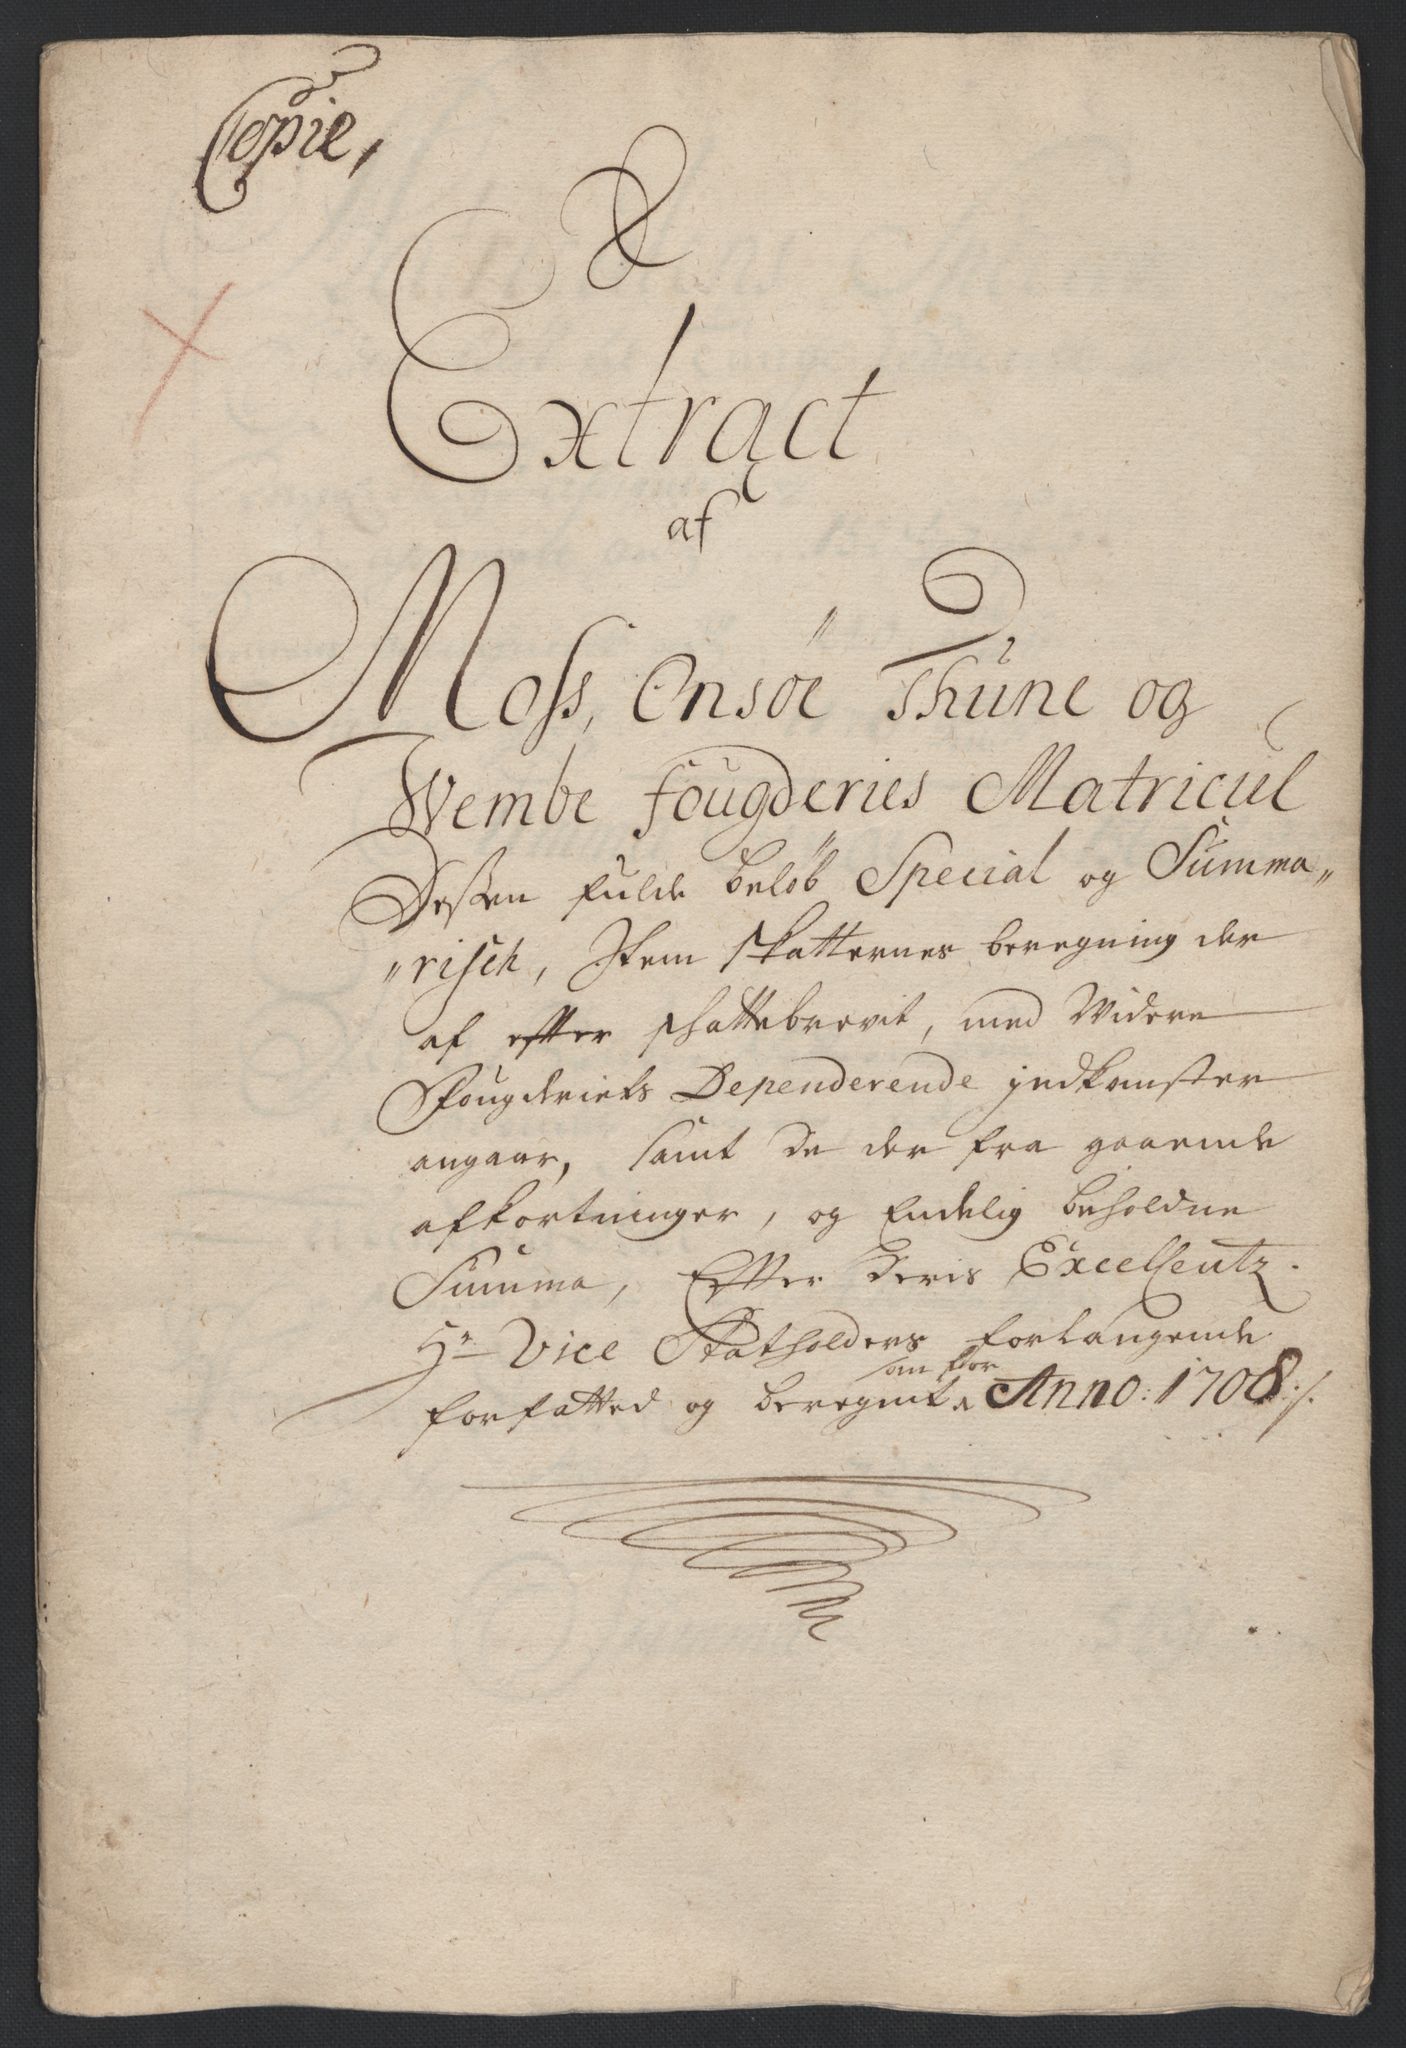 Copie,
Extract
af
Moss, Onsøe Thune og
Wembe fougderies Matricul
Dessen fulde beløb Special og Summa„
„risch, Item skatternes beregning der
af efter skattebrevit, med Widere
Fougderiets Dependerende indkomster
angaar, samt de der fra gaaende
afkortninger, og Endelig beholdne
Summa, Efter deris Excellentz.
Hr Vice Statholders forlangende
forfatted og beregnet for Anno: 1708 ./.